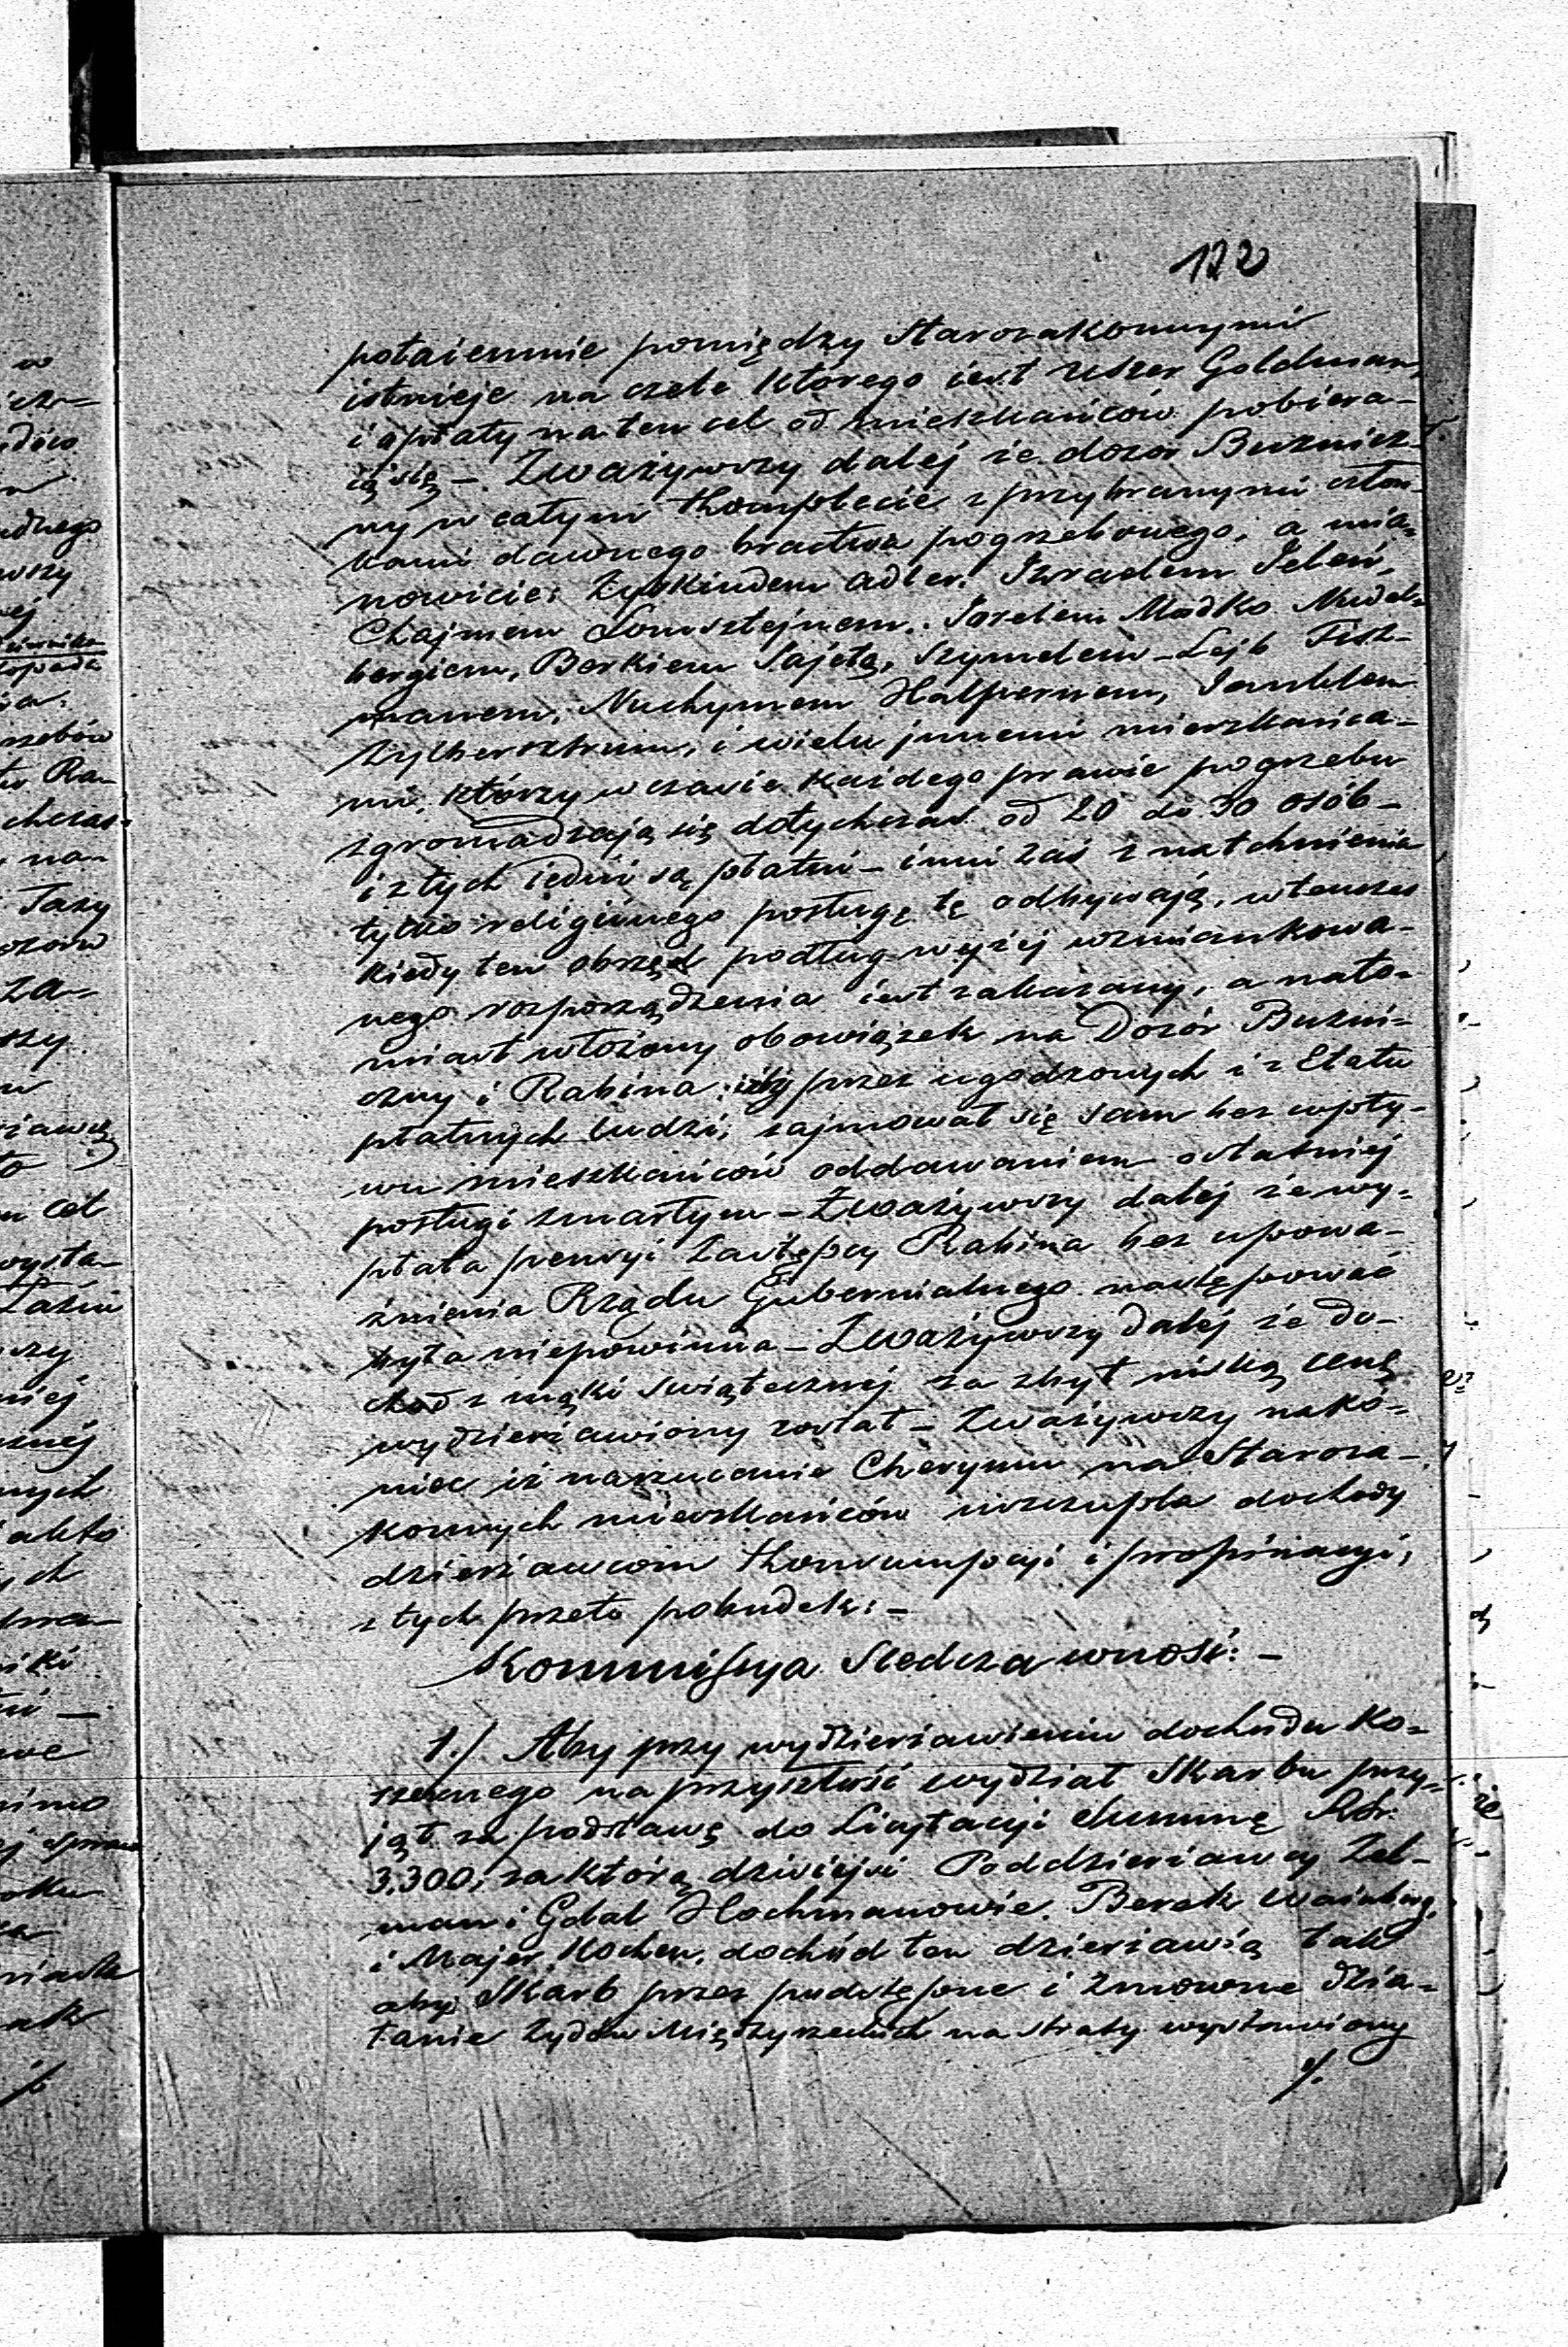 122
potaiemnie pomiędzy Starozakonnymi
istnieje na czele którego iest Uszer Goldman,
i opłaty na ten cel od mieszkańców pobiera-
ią się – Zważywszy dalej że dozór Bużnicz-
ny w całym Komplecie z przybranymi człon-
kami dawnego bractwa pogrzebowego, a mia-
nowicie: Zyskindem Adler, Izraelem Jeleń,
Chajmem Sonsztejnem, Joselem Madko Nudel-
bergiem, Berkiem Sajetą, Szymelem-Lejb Fisz-
manem, Nuchymem Halpernem, Janklem
Zylbersztrum, i wielu innemi mieszkańca-
mi, którzy w czasie każdego prawie pogrzebu
zgromadzają się dotychczas od 20 do 30 osób –
i z tych iedni są płatni – inni zaś z natchnienia
tylko religiinego posługę tę odbywają, wtenczas
kiedy ten obrzęd podług wyżej wzmiankowa-
nego rozporządzenia iest zakazany, a nato-
miast włożony obowiązek na Dozór Bużni-
czny i Rabina, iżby przez ugodzonych i z Etatu
płatnych ludzi, zajmował się sam bez wpły-
wu mieszkańców oddawaniem ostatniej
posługi zmarłym – Zważywszy dalej że wy-
płata pensyi Zastępcy Rabina bez upowa-
żnienia Rządu Gubernialnego następować
była niepowinna – Zważywszy dalej że do-
chód z mąki świątecznej za zbyt niską cenę
wydzierżawiony został – Zważywszy nako-
niec iż narzucanie Cherymu na Staroza-
konnych mieszkańców uszczupla dochody
dzierżawcom Konsumpcyi i propinacyi,
z tych przeto pobudek: –
Kommissya Śledcza wnosi: –
1./ Aby przy wydzierżawieniu dochodu Ko-
szernego na przyszłość wydział Skarbu przy-
jął za podstawę do Licytacyi summę Rsr.
3.300, za którą dzisiejsi Poddzierżawcy Zel-
man i Gdal Hochmanowie, Berek Wainberg,
i Majer Kochen, dochód ten dzierżawią tak
aby Skarb przez podstępne i zmowne dzia-
łanie Żydów Międzyrzeckich na straty wystawiony
./.